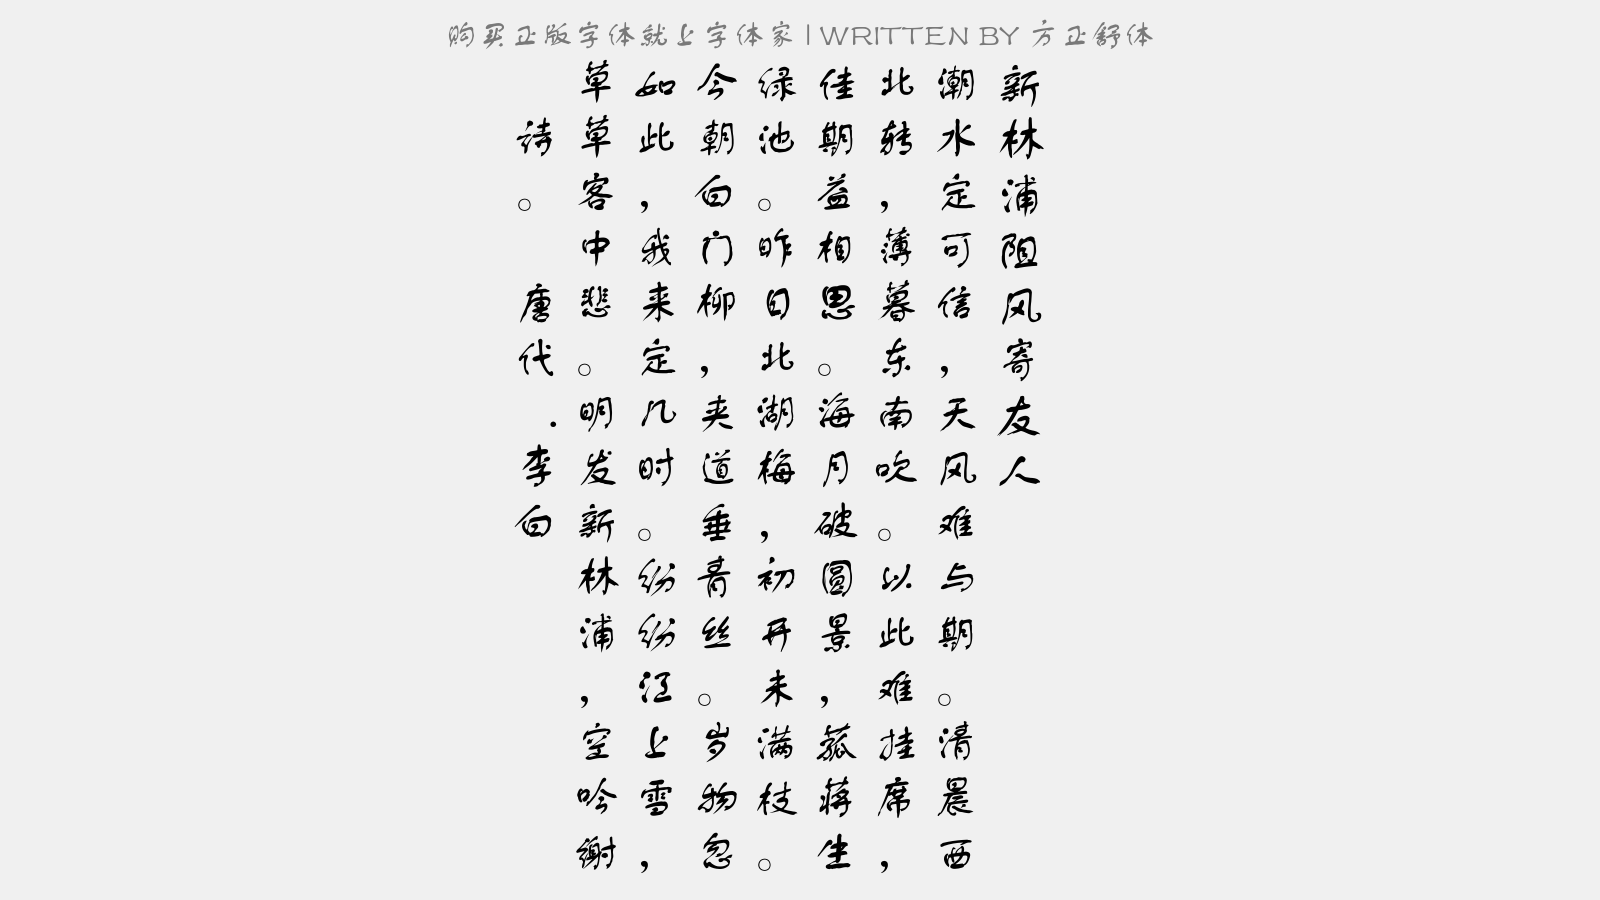 购买正版字体就上字体家 | WRITTEN BY 方正舒体
新林浦阻风寄友人
潮水定可信，天风难与期。清晨西
北转，薄暮东南吹。以此难挂席，
佳期益相思。海月破圆景，菰蒋生
绿池。昨日北湖梅，初开未满枝。
今朝白门柳，夹道垂青丝。岁物忽
如此，我来定几时。纷纷江上雪，
草草客中悲。明发新林浦，空吟谢
诗。 唐代.李白